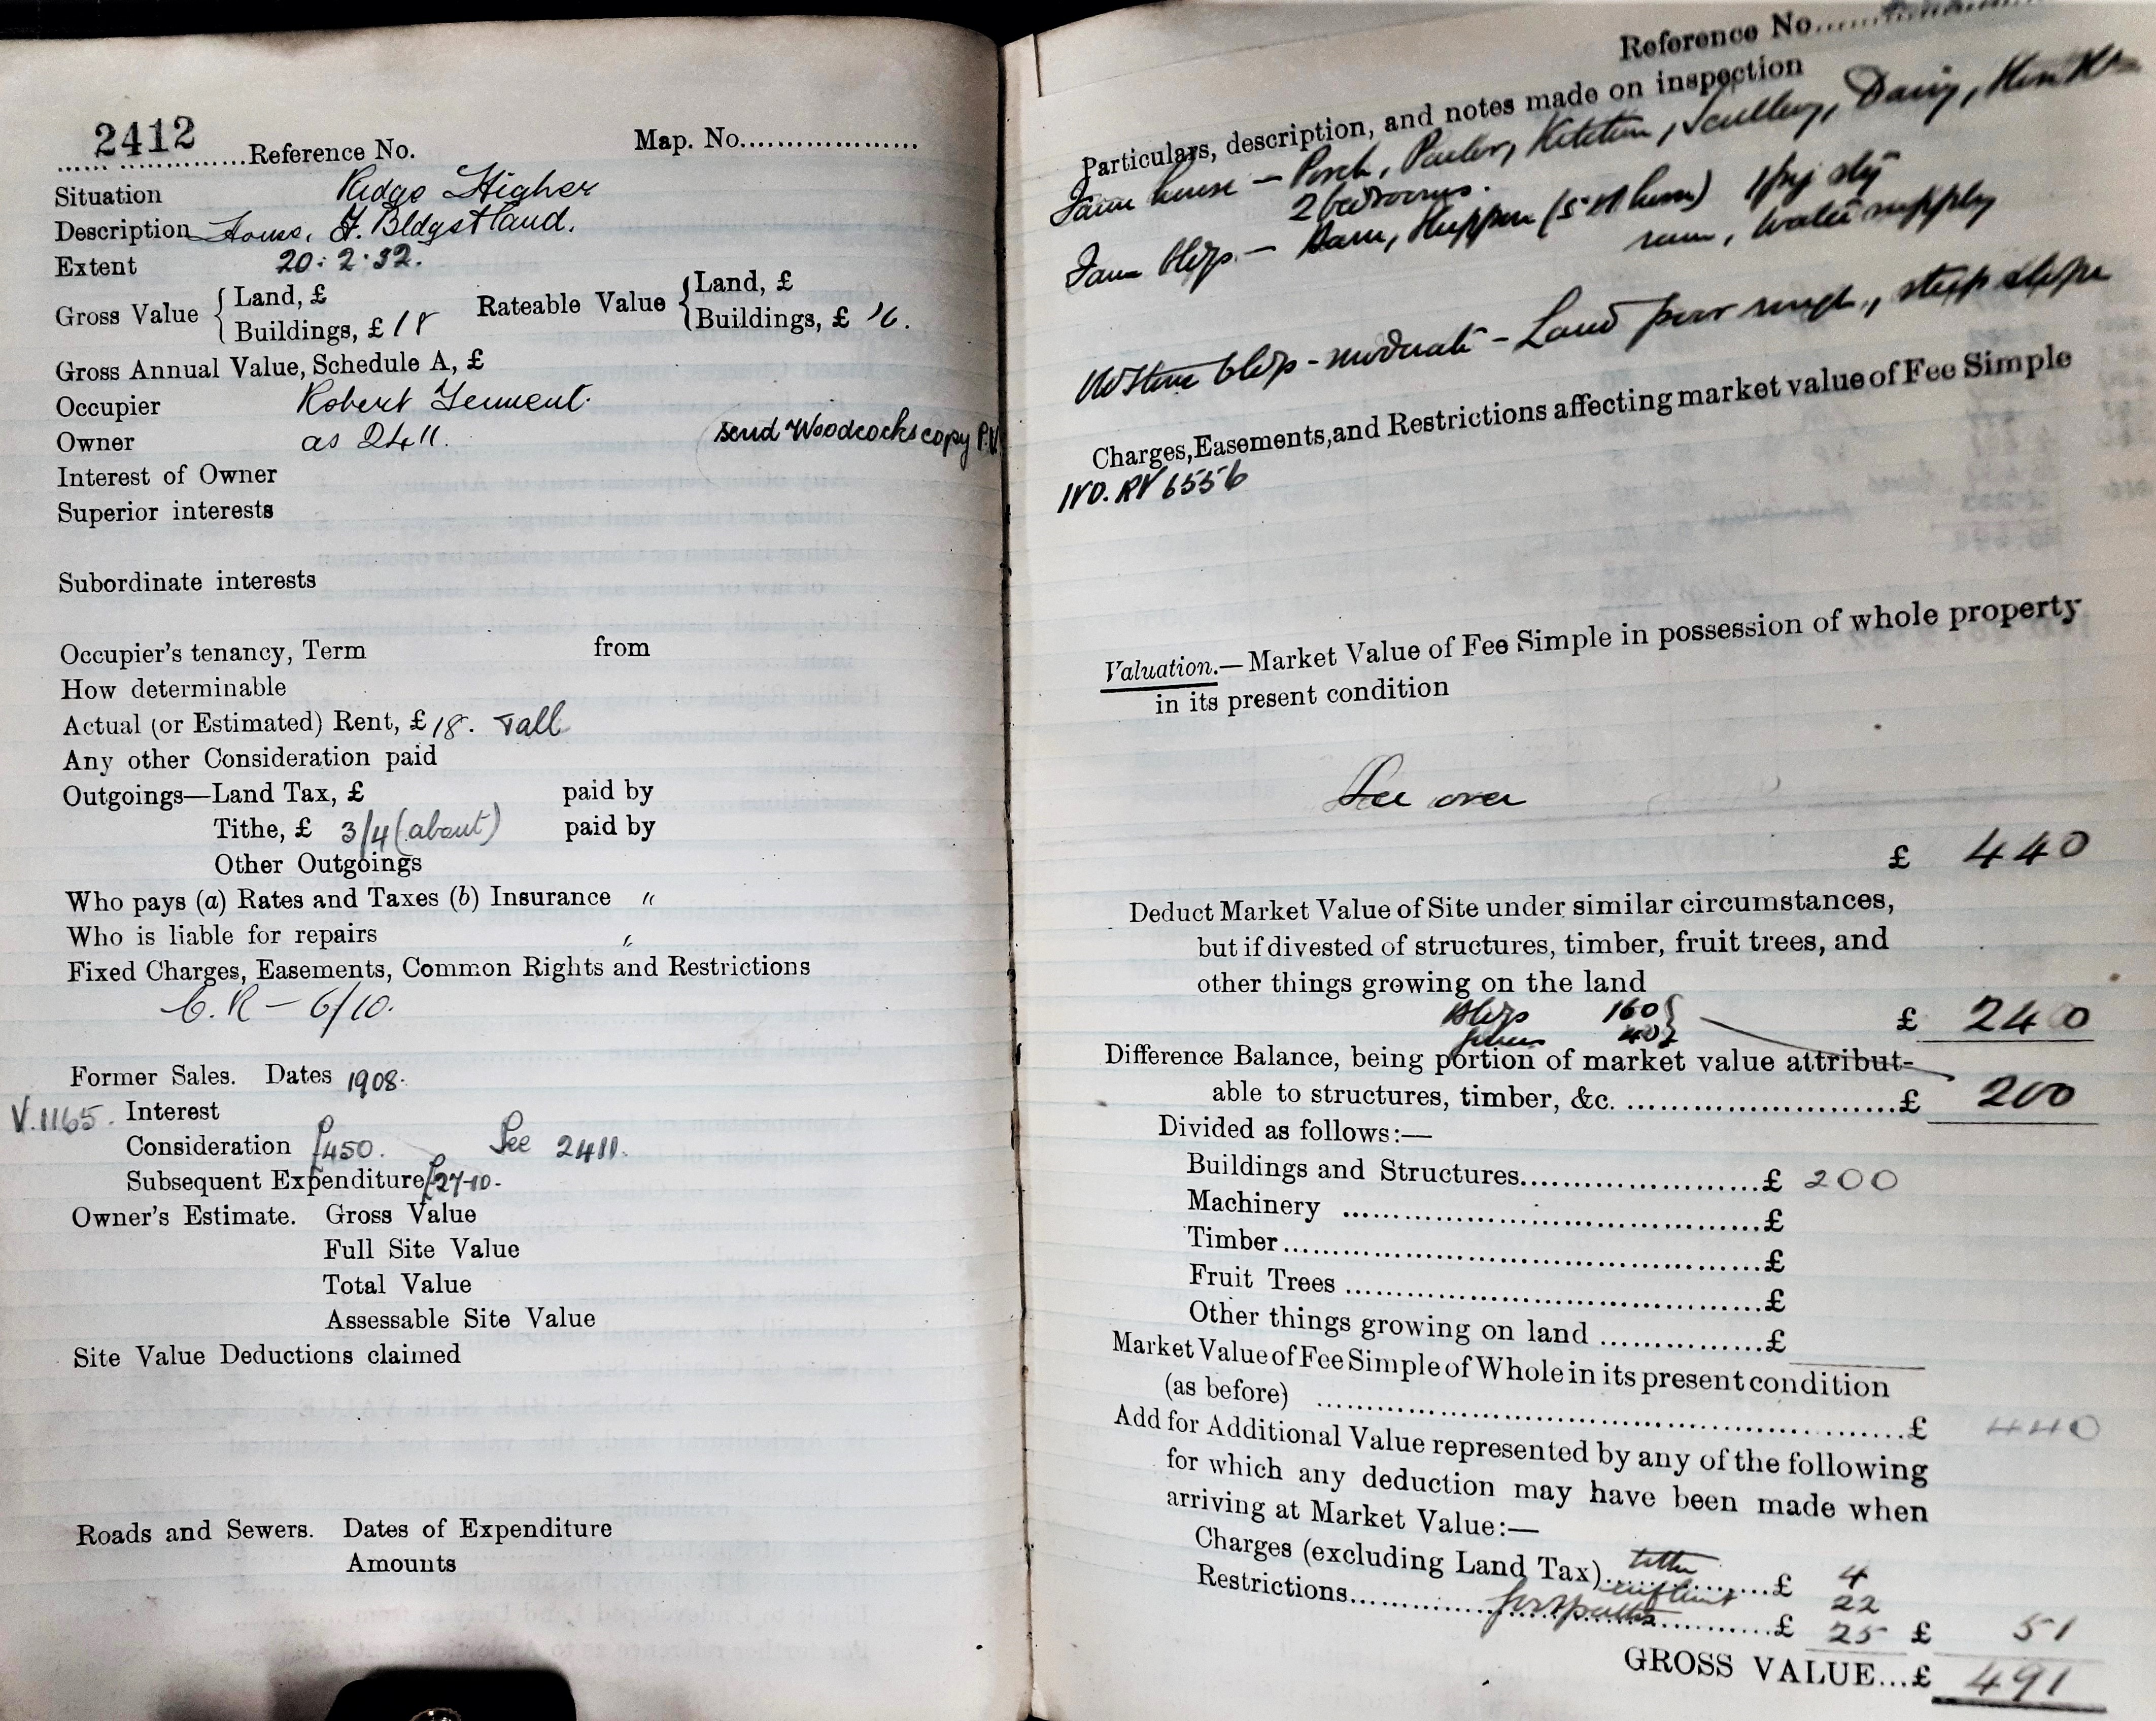 2412
Reference No. Map. No.
Situation Ridge Higher
Description House, F. Bldgs & Land.
Extent 20: 2. 32.
Gross Value { Land, £ Rateable Value { Land, £
Buildings, £ 18 Buildings, £ 16.
Gross Annual Value, Schedule A, £
Occupier Robert
Owner as 2411. send Woodcocks copy P.V
Interest of Owner
Superior interests
Subordinate interests
Occupier's tenancy, Term from
How determinable
Actual (or Estimated) Rent, £ 18. T all
Any other Consideration paid
Outgoings—Land Tax, £ paid by
Tithe, £ 3/4 (about) paid by
Other Outgoings
Who pays (a) Rates and Taxes (b) Insurance "
Who is liable for repairs "
Fixed Charges, Easements, Common Rights and Restrictions
C.R — 6/10.
Former Sales. Dates 1908.
V.1165. Interest
Consideration £450. See 2411.
Subsequent Expenditure £27-10-
Owner's Estimate. Gross Value
Full Site Value
Total Value
Assessable Site Value
Site Value Deductions claimed
Roads and Sewers. Dates of Expenditure
Amounts
Reference No.
Particulars, description, and notes made on inspection
Farm house — Porch, Parlor, Kitchen, Scullery, Dairy, Hen
2 bedrooms.
Farm bldgs. — Barn, Shippon (5 1 pig sty
water supply
Old Stone bldgs - moderate - Land poor rough, steep slope
Charges, Easements, and Restrictions affecting market value of Fee Simple
IVD. RV 6556
Valuation.— Market Value of Fee Simple in possession of whole property
in its present condition
See over
£ 440
Deduct Market Value of Site under similar circumstances,
but if divested of structures, timber, fruit trees, and
other things growing on the land
Bldgs 160 } £ 240
40 }
Difference Balance, being portion of market value attribut-
able to structures, timber, &c. £ 200
Divided as follows:—
Buildings and Structures £ 200
Machinery £
Timber £
Fruit Trees £
Other things growing on land £
Market Value of Fee Simple of Whole in its present condition
(as before) £ 440
Add for Additional Value represented by any of the following
for which any deduction may have been made when
arriving at Market Value:—
Charges (excluding Land Tax) tithe £ 4
22
Restrictions footpaths £ 25 £ 51
GROSS VALUE...£ 491